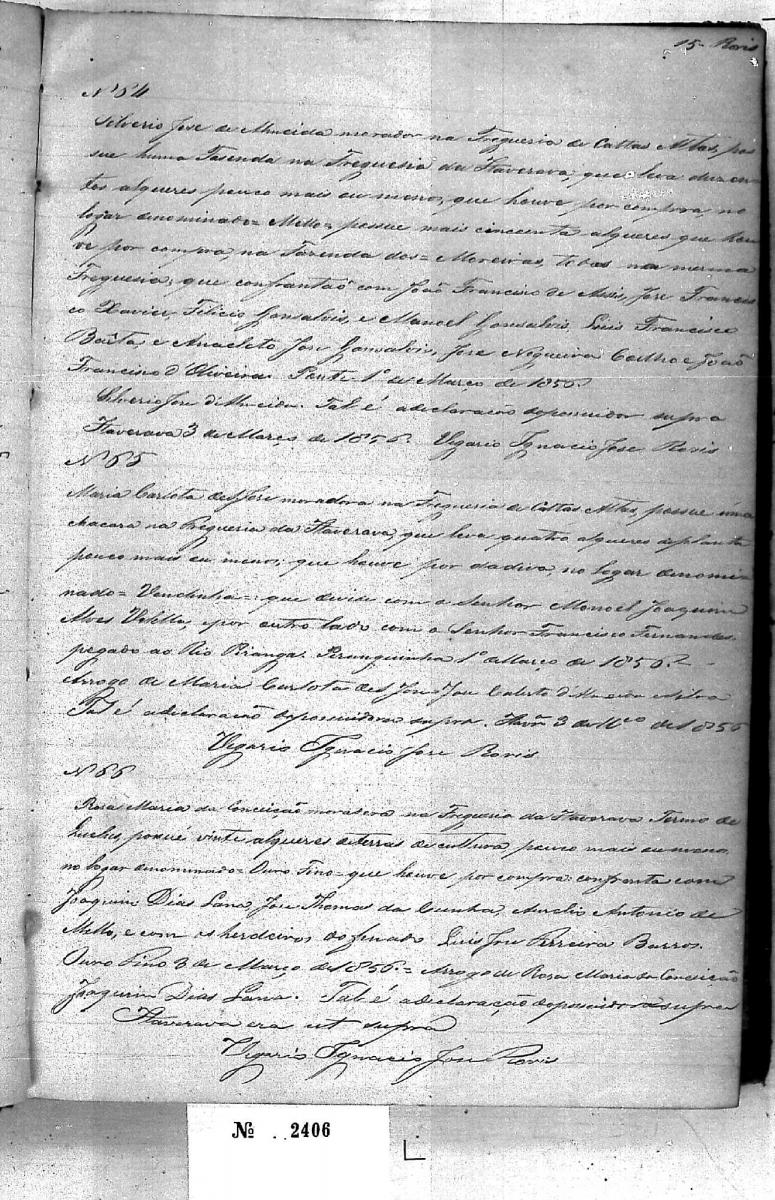 15 Rovis
Nº 64
Silverio Jose de Almeida morador na Freguesia de Cattas Altas, pos
sue huma Fasenda na Freguesia da Itaverava, que leva duzen
tos alqueres pouco mais ou menos, que houve por compra, no
logar denominado = Mello = possue mais cincoenta alqueres que hou
ve por compra, na Fazenda dos = Moreiras, todas na mesma
Freguesia, que confrontaõ com Joaõ Francisco de Assis, Jose Francis
co Xavier, Felicio Gonsalvis, e Manoel Gonsalvis, Luis Francisco
Baêta, e Anacleto Jose Gonsalvis, Jose Nogueira Coelho e Joaõ
Francisco d'Oliveira. 1º de Março de 1856.
Silverio Jose d'Almeida. Tal é a declaração do possuidor supra
Itaverava 3 de Março de 1856. Vigario Ignacio Jose Rovis
Nº 65
Maria Carlota de S Jose moradora na Freguesia de Cattas Altas, possue uma
chacara na Freguesia da Itaverava, que leva quatro alqueres de planta
pouco mais ou menos, que houve por dadiva, no logar denomi
nado = Vendinha = que divide com o Senhor Manoel Joaquim
Alves, e por outro lado com o Senhor Francisco Fernandes
pegado ao Rio Piranga. Piranguinha 1º de Março de 1856.
Arrogo de Maria Carlota de S Jose Jose d'Almeida e Silva
Tal é a declaração da possuidora supra. Itavª 3 de Mço de 1856
Vigario Ignacio Jose Rovis
Nº 66
Rosa Maria da Conceição moradora na Freguesia da Itaverava Termo de
Queluz, possue vinte alqueres de terras de cultura, pouco mais ou menos,
no logar denominado = Ouro Fino = que houve por compra: confronta com
Joaquim Dias Lana, Jose Thomas da Cunha, Aurelio Antonio de
Mello, e com os herdeiros do finado Luis Jose Ferreira Barros.
Ouro Fino 3 de Março de 1856. = Arrogo de Rosa Maria da Conceição
Joaquim Dias Lana. Tal é a declaração da possuidora supra
Itaverava era ut supra
Vigario Ignacio Jose Rovis
№ 2406